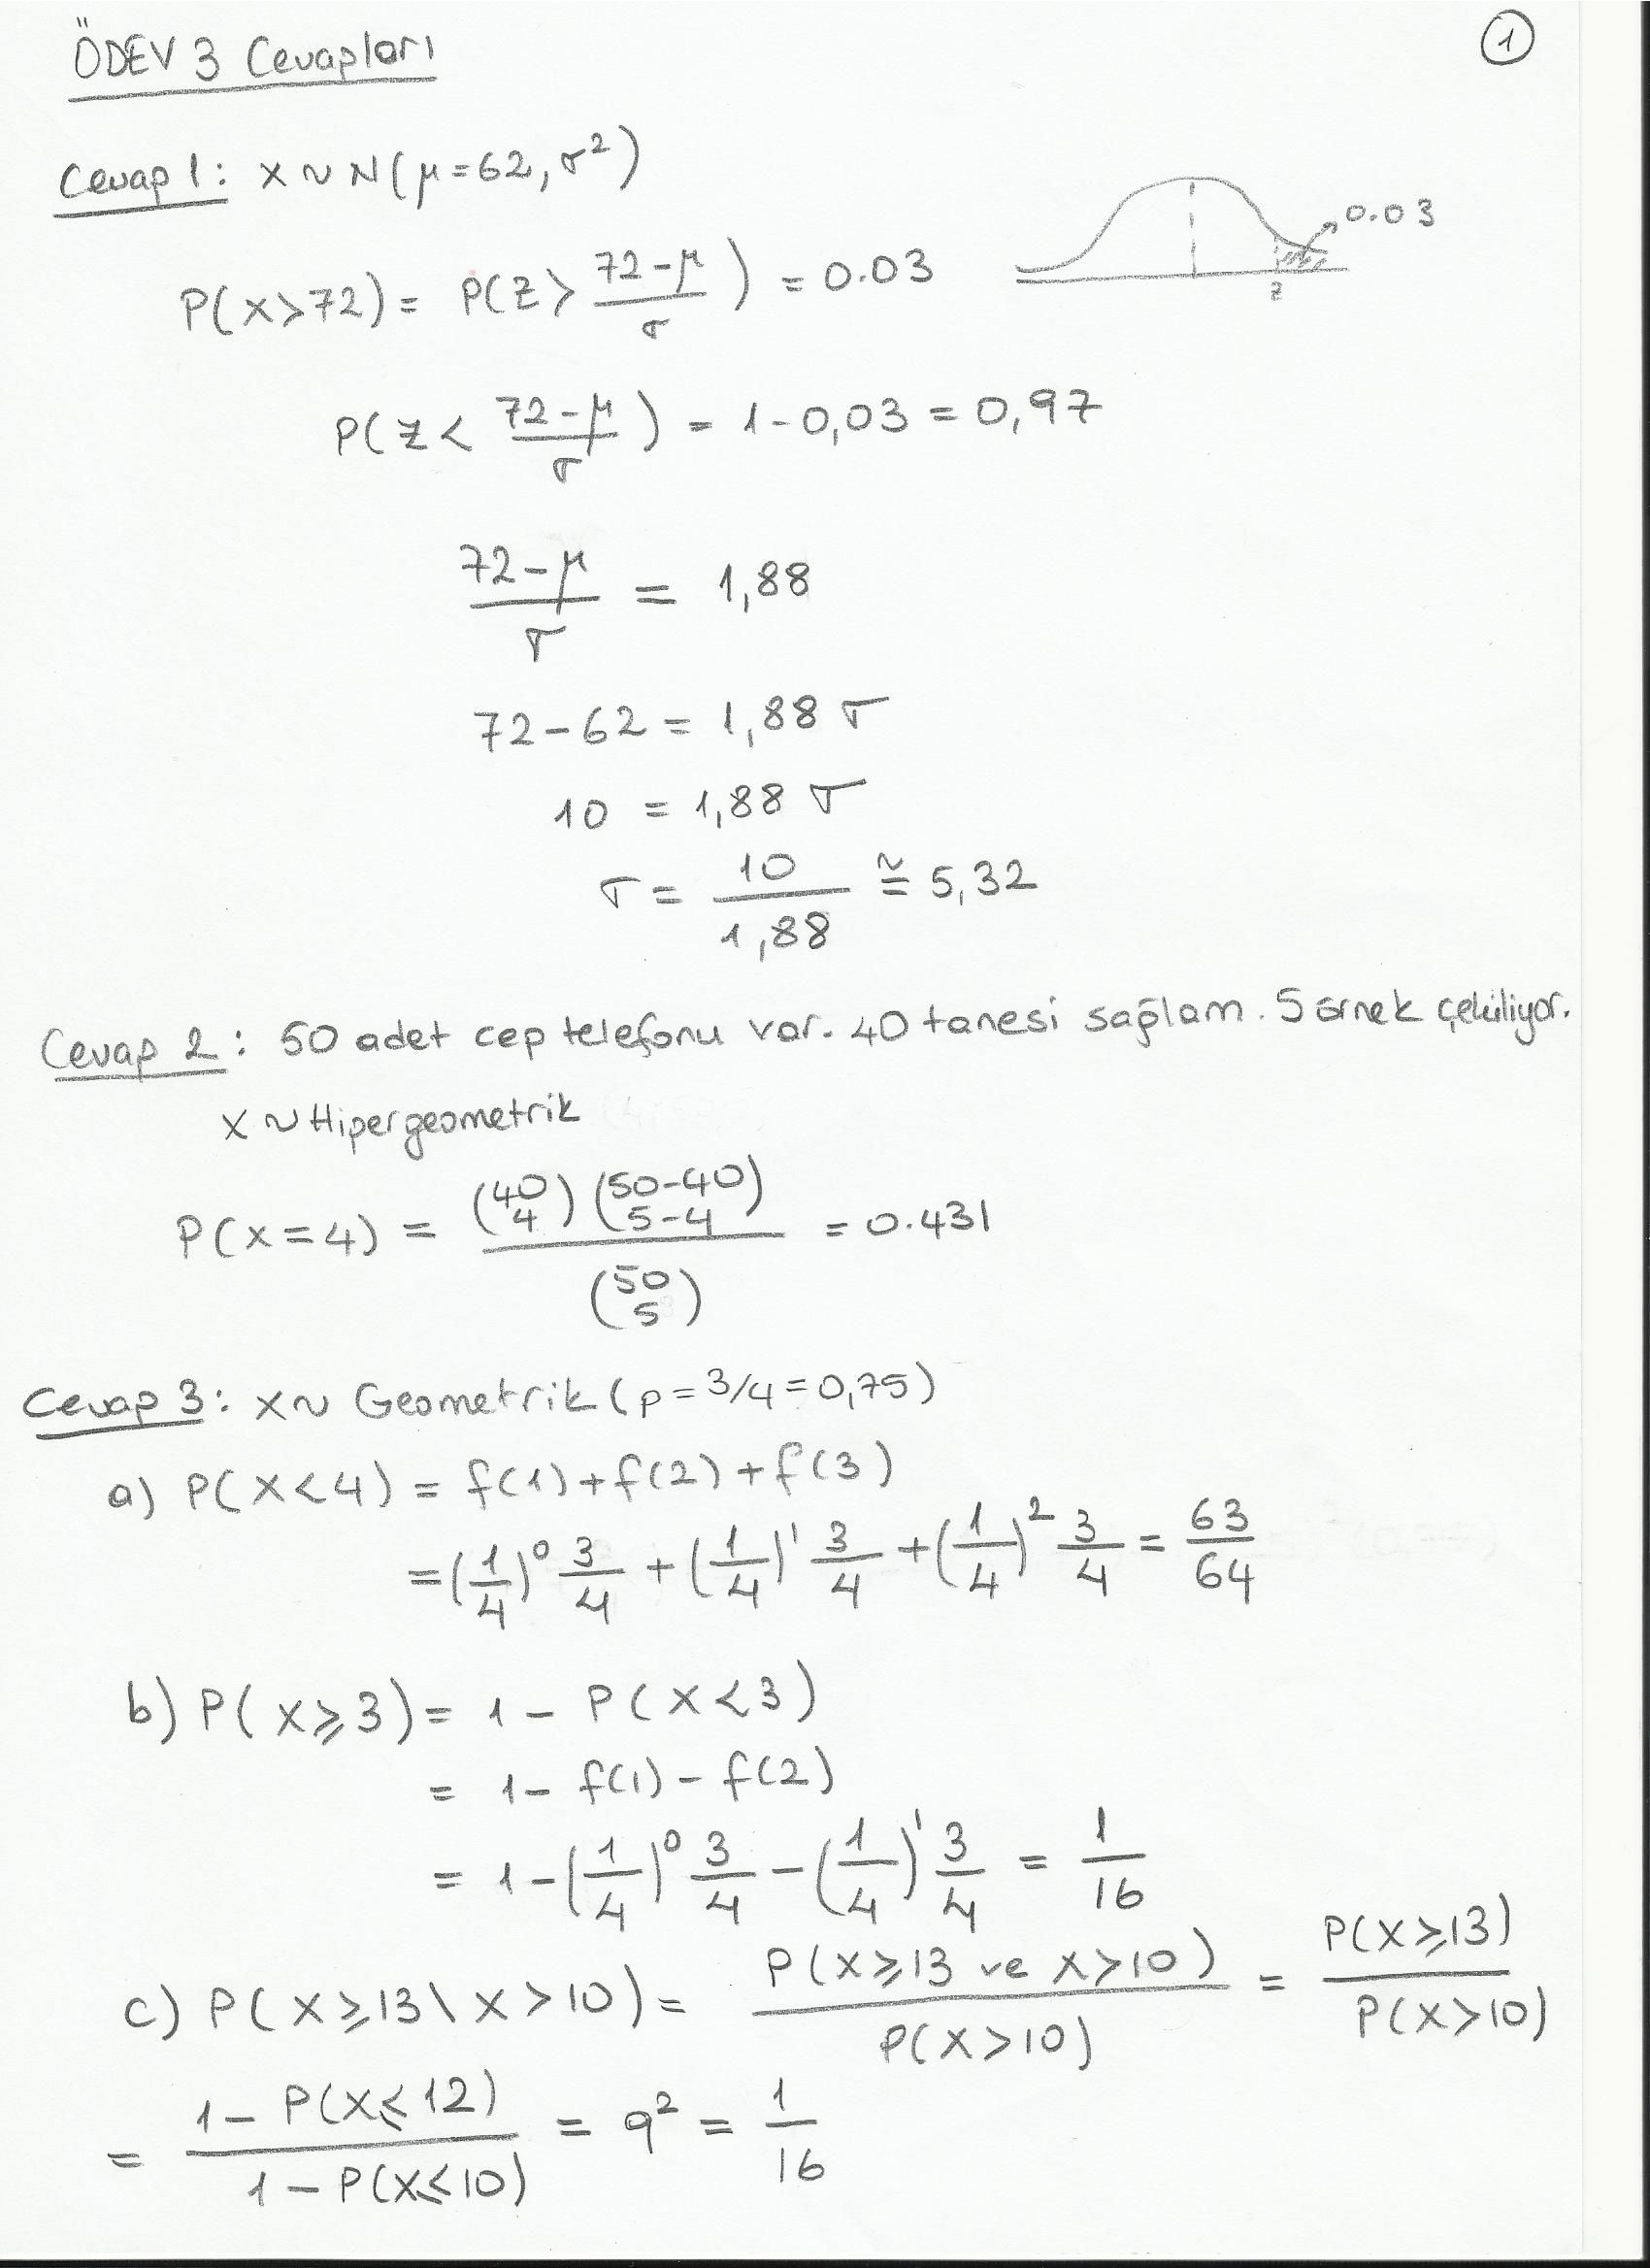 ÖDEV 3 Cevapları
1
Cevap 1: X ~ N(μ=62, σ²)
P(X>72) = P(Z > (72-μ)/σ) = 0.03
0.03
z
P(Z < (72-μ)/σ) = 1-0,03 = 0,97
(72-μ)/σ = 1,88
72-62 = 1,88 σ
10 = 1,88 σ
σ = 10/1,88 ≅ 5,32
Cevap 2: 50 adet cep telefonu var. 40 tanesi sağlam. 5 örnek çekiliyor.
X ~ Hipergeometrik
P(X=4) = (40 4)(50-40 5-4)/(50 5) = 0.431
Cevap 3: X ~ Geometrik (p = 3/4 = 0,75)
a) P(X<4) = f(1)+f(2)+f(3)
= (1/4)⁰ 3/4 + (1/4)¹ 3/4 + (1/4)² 3/4 = 63/64
b) P(X≥3) = 1 - P(X<3)
= 1 - f(1) - f(2)
= 1 - (1/4)⁰ 3/4 - (1/4)¹ 3/4 = 1/16
c) P(X≥13 \ X>10) = P(X≥13 ve X>10)/P(X>10) = P(X≥13)/P(X>10)
= (1 - P(X≤12))/(1 - P(X≤10)) = q² = 1/16